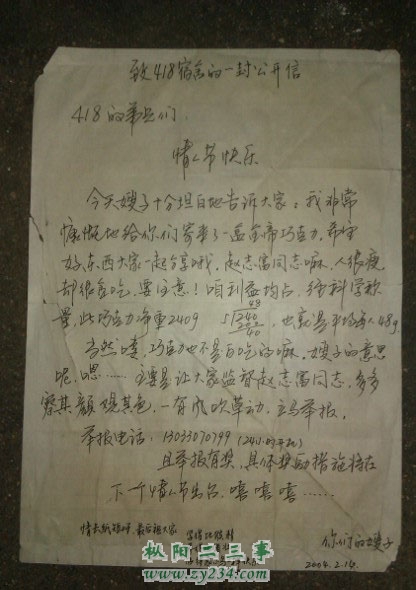 致418宿舍的一封公开信
418的弟兄们:
情人节快乐
今天嫂子十分坦白地告诉大家:我非常
慷慨地给你们寄来了一盒金帝巧克力,希望
好东西大家一起分享哦,赵志富同志嘛,人很瘦
却很贪吃,要注意!咱利益均占,经科学称
量,此巧克力净重240g
48
5 240
40
也就是平均每人48g
当然喽,巧克力也不是白吃的嘛,嫂子的意思
呢,嗯……主要是让大家监督赵志富同志,多多
察其颜观其色,一有风吹草动,立马举报。
举报电话:13033070799(24小时开机)
且举报有奖,具体奖励措施将在
下个情人节出台,嘻嘻嘻……
你们的嫂子
2004.2.14
枞阳二三事
www.zy234.com